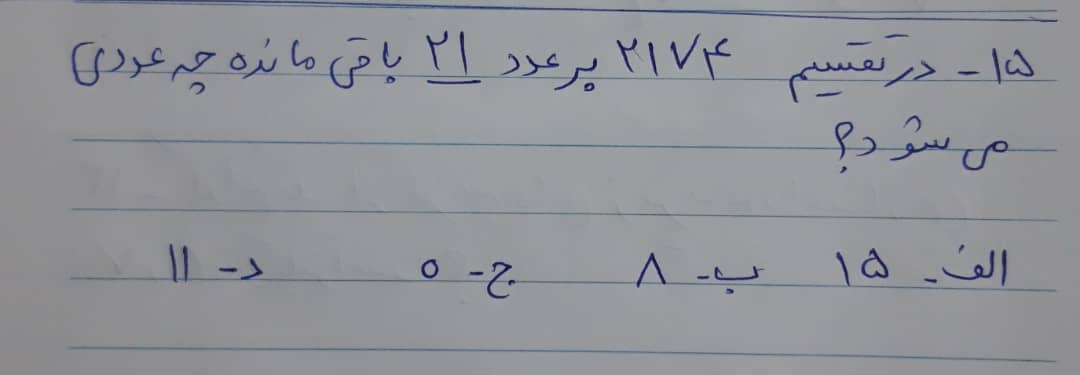 ۱۵- در تقسیم ۲۱۷۴ بر عدد ۲۱ باقی مانده چه عددی
می شود؟
الف- ۱۵ ب- ۸ ج- ۵ د- ۱۱